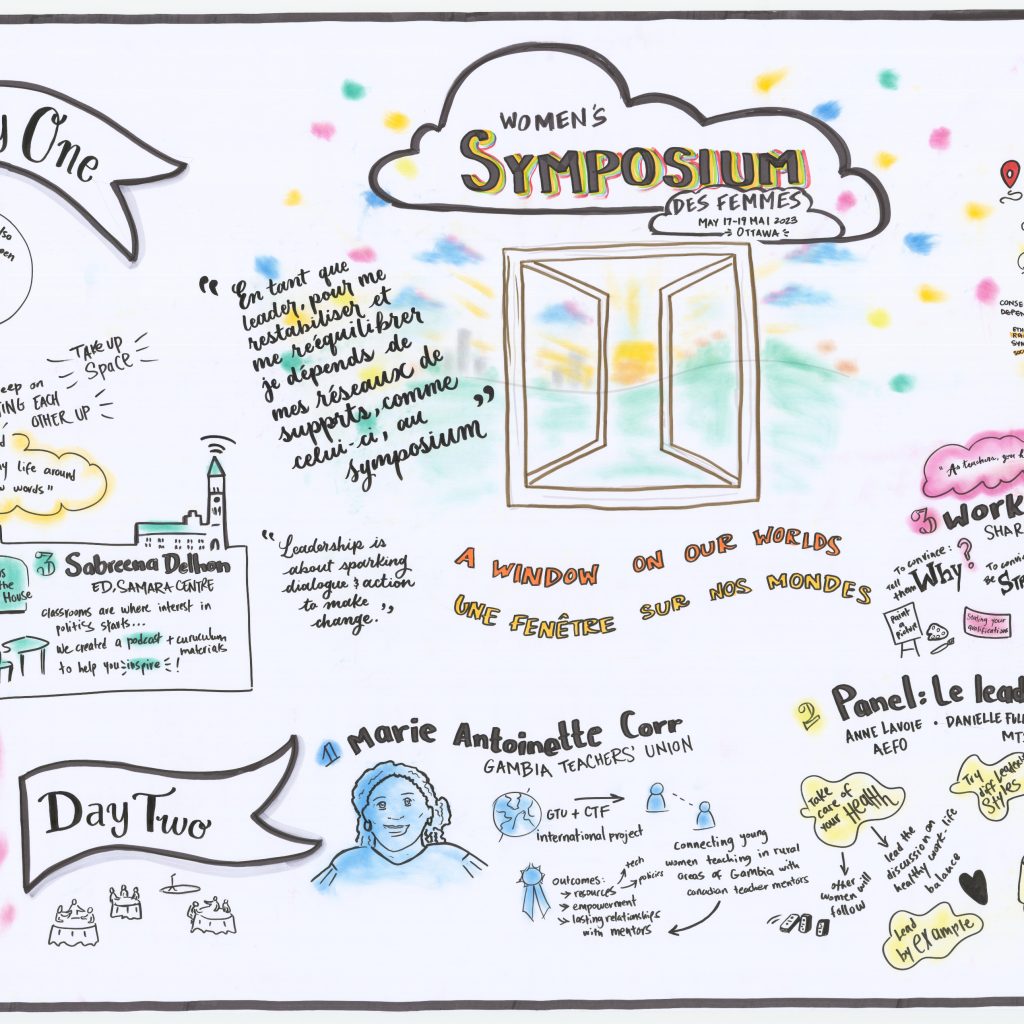 One
WOMEN'S
SYMPOSIUM
DES FEMMES
MAY 17-19 MAI 2023
OTTAWA
"En tant que
leader, pour me
restabiliser et
me rééquilibrer
je dépends de
mes réseaux de
supprts, comme
celui-ci, au
symposium"
TAKE UP
SPACE
EACH
OTHER UP
life around
words"
3 Sabreena Delhon
ED, SAMARA CENTRE
classrooms are where interest in
politics starts...
We created a podcast + curuculum
materials
to help you inspire!
the
House
"Leadership is
about sparking
dialogue & action
to make
change."
A WINDOW ON OUR WORLDS
UNE FENÊTRE SUR NOS MONDES
"As teachers, your
3 WORK
SHAR
To convince:
Tell them Why?
Paint
a
picture
Stating your
qualifications
Day Two
1 Marie Antoinette Corr
GAMBIA TEACHERS' UNION
GTU + CTF
international project
connecting young
women teaching in rural
areas of Gambia with
canadian teacher mentors
Outcomes:
→ resources
tech
policies
→ empowerment
→ lasting relationships
with mentors
2 Panel: Le lead
ANNE LAVOIE · DANIELLE FULL
AEFO
MTS
Take
care of
your HEALTH
Try
diff leadership
styles
other
women will
follow
lead the
discussion on
healthy work-life
balance
Lead
by example